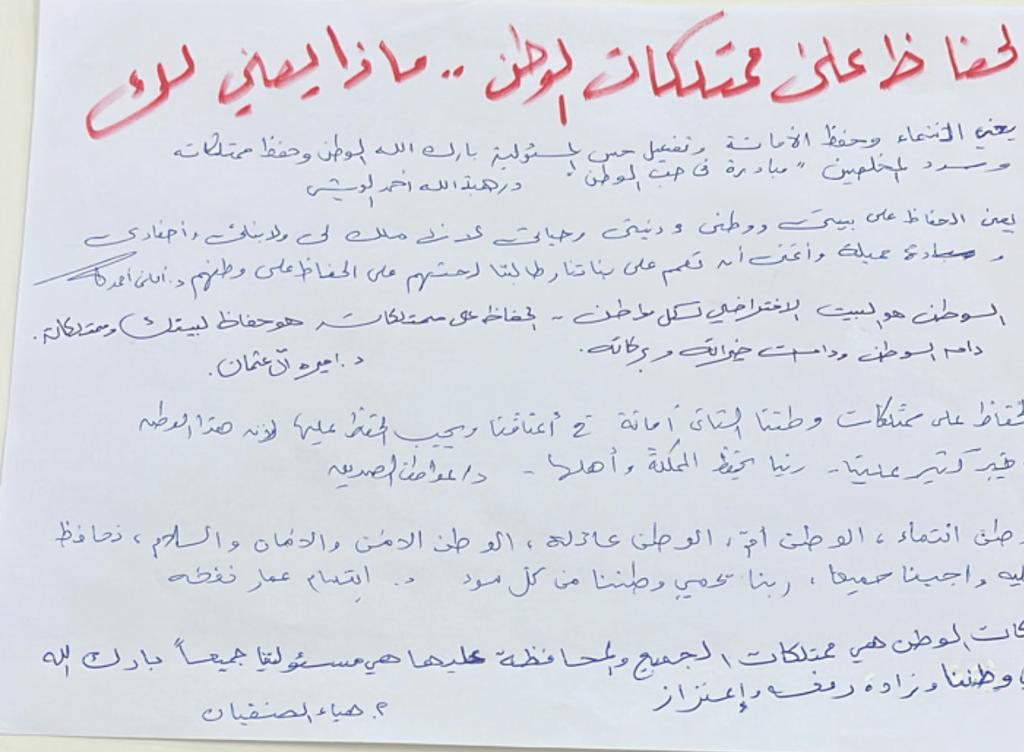 لحفاظ على ممتلكات الوطن .. ماذا يعني لك
يعني الانتماء وحفظ الأمانة وتفعيل حس المسئولية بارك الله الوطن وحفظ ممتلكاته
وسدد المخلصين "مبادرة في حب الوطن" د. هبة الله احمد
يعني الحفاظ على بيتي ووطني ودنيتي وحياتي لانه ملك لي ولابنائي وأحفادي
و جميلة وأتمنى أن تعمم على بناتنا وطالبتنا لحثهم على الحفاظ على وطنهم د. أماني أحمد
الوطن هو البيت الافتراضي لكل مواطن - الحفاظ على ممتلكاته هو حفاظ لبيتك وممتلكاته.
دام الوطن ودامت خيراته وبركاته. د. اميره آل عثمان.
لحفاظ على ممتلكات وطننا الثاني أمانة في أعناقنا ويجب الحفظ عليها لأنه هذا الوطن
خير كتير علينا - ربنا يحفظ المملكة وأهلها - د/عواطف الصديق
وطن انتماء، الوطن أم، الوطن عائلة، الوطن الامن والامان والسلام، نحافظ
ليه واجبنا جميعا، ربنا يحمي وطننا من كل سوء د. ابتسام عمار
كات الوطن هي ممتلكات الجميع والمحافظة عليها هي مسئوليتنا جميعاً بارك الله
ي وطننا وزاده رفعه وإعتزاز
م. هياء الصنقيان